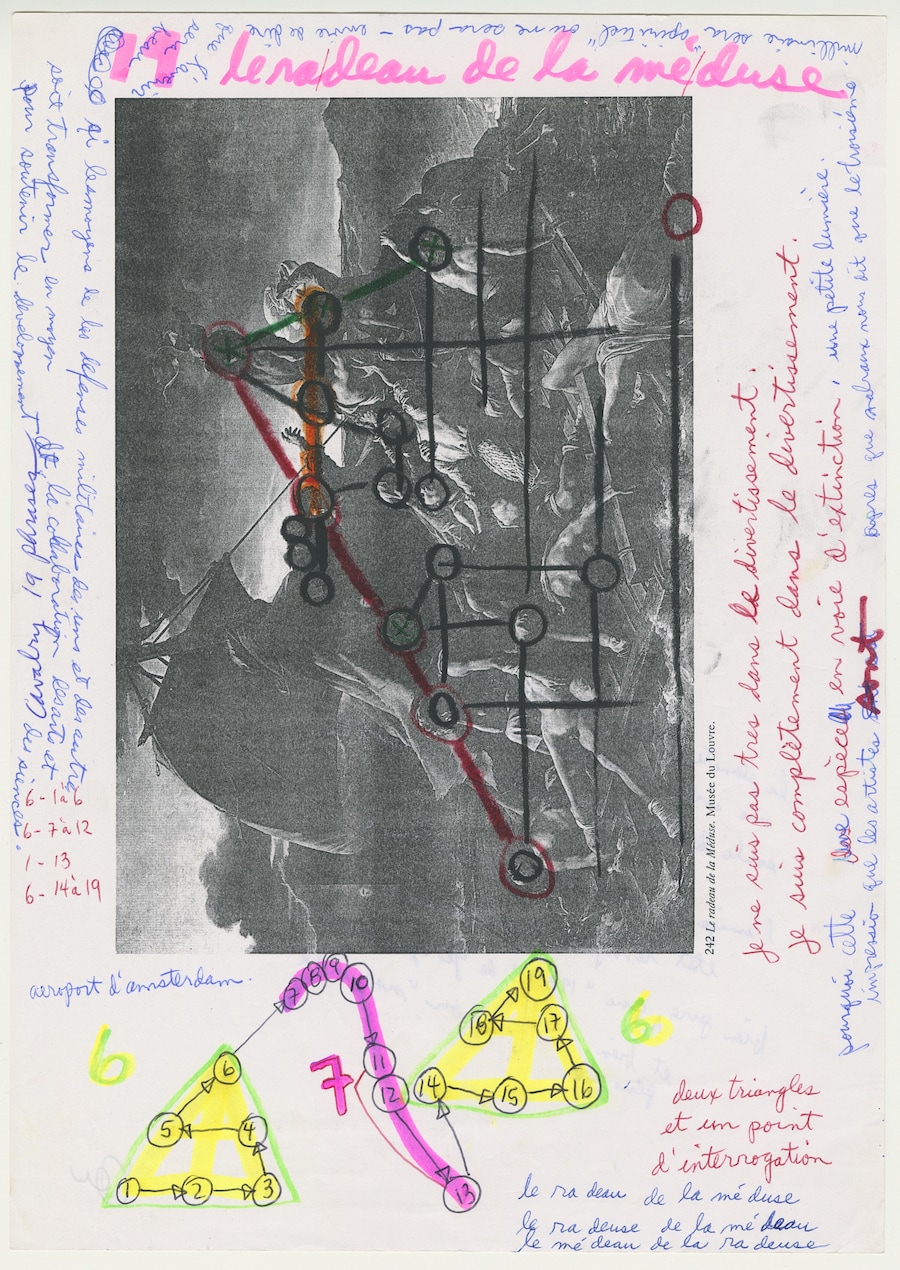 millénaire sera "spirituel" ou ne sera pas - envie de dire
que l'avis
sera
beau
19 le ra/deau de la mé/duse
si les moyens de les défenses militaires des uns et des autres
soit transformer en moyen de la collaboration des arts et
pour soutenir le développement des siences.
6 - 1 à 6
6 - 7 à 12
1 - 13
6 - 14 à 19
242 Le radeau de la Méduse. Musée du Louvre.
je ne suis pas tres dans le divertissement.
je suis complètement dans le divertissement.
pourquoi cette espèce en voie d'extinction, une petite lumière.
impression que les artistes sont après que Malraux nous dit que le troisième
aeroport d'amsterdam.
6
1 2 3 4 5 6
7
7 8 9 10 11 12 13
6
14 15 16 17 18 19
deux triangles
et un point
d'interrogation
le ra deau de la mé duse
la ra deuse de la mé deau
le mé deau de la ra deuse